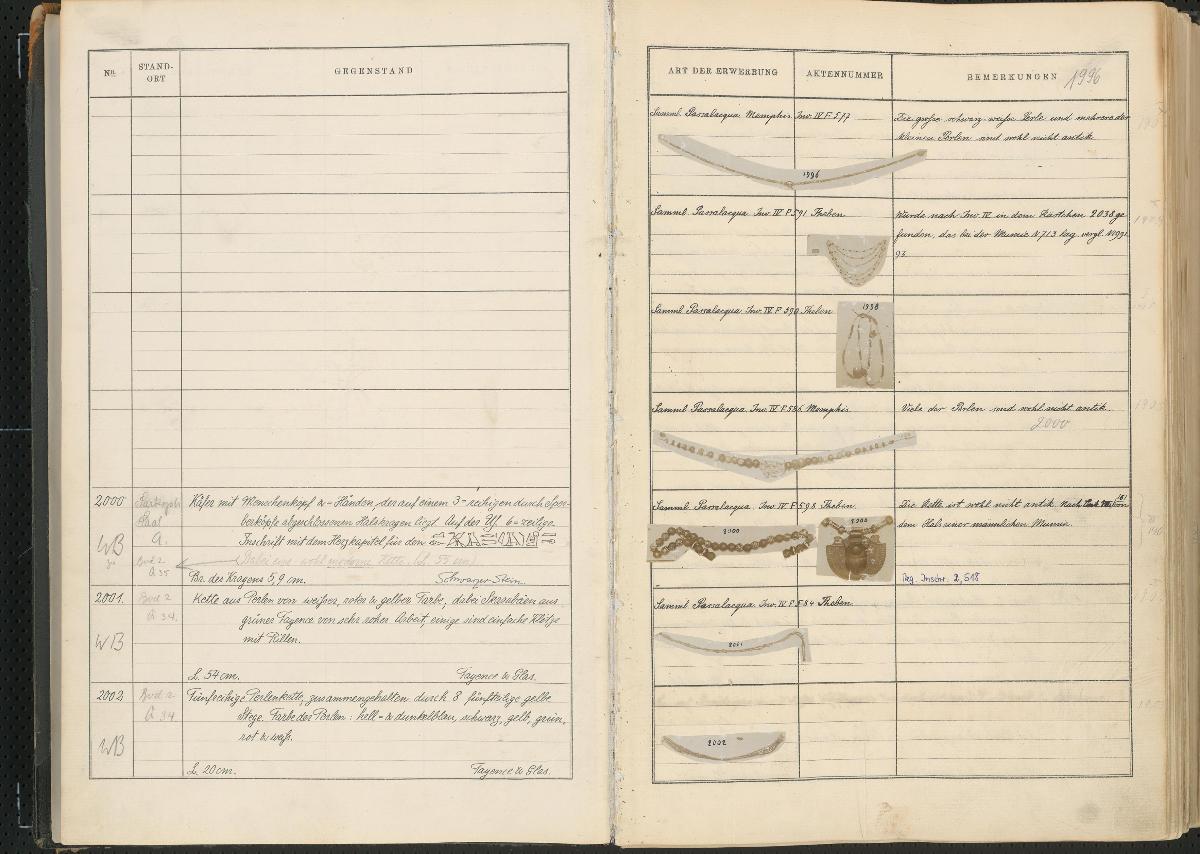 No.
STAND-
ORT
GEGENSTAND
2000
Saal
Käfer mit Menschenkopf u- Händen, der auf einem 3=reihigen durch Sper-
berköpfe abgeschlossenen Halskragen liegt. Auf der Uf. 6=zeilige
a.
WB
Inschrift mit dem Herzkapitel für den
Bvd 2
a 35
(Dabei eine wohl moderne Kette. (L. 55 cm)
Br. des Kragens 5,9 cm.
Schwarzer Stein.
2001.
Bvd 2
a 34.
WB
Kette aus Perlen von weißer, roter u gelber Farbe, dabei Skarabäen aus
grüner Fayence von sehr roher Arbeit, einige sind einfache Klötze
mit Rillen.
L. 54 cm.
Fayence u Glas.
2002
Bvd 2
a 34
WB
Fünfreihige Perlenkette, zusammengehalten durch 8 fünfteilige gelbe
Stege. Farbe der Perlen: hell= u dunkelblau, schwarz, gelb, grün,
rot u weiß.
L. 20 cm.
Fayence u Glas.
ART DER ERWERBUNG
AKTENNUMMER
BEMERKUNGEN
1996
Samml. Passalacqua Memphis Inv. IV F 577
Die große schwarz-weiße Perle und mehrere der
kleinen Perlen sind wohl nicht antik.
1996
Samml. Passalacqua Inv. IV F 591 Theben
Wurde nach Inv. IV in dem Kästchen 2038 ge
funden, das bei der Mumie N 713 lag. vergl. N 1991.
93
Samml. Passalacqua Inv. IV F 590 Theben
1998
Samml. Passalacqua Inv. IV F 586 Memphis.
Viele der Perlen sind wohl nicht antik.
2000
Samml. Passalacqua. Inv. IV F 598 Theben.
Die Kette ist wohl nicht antik. Nach
dem Hals einer männlichen Mumie.
2000
2000
Aeg. Inschr. 2, 518
Samml. Passalacqua. Inv. IV F 584 Theben.
2001
2002